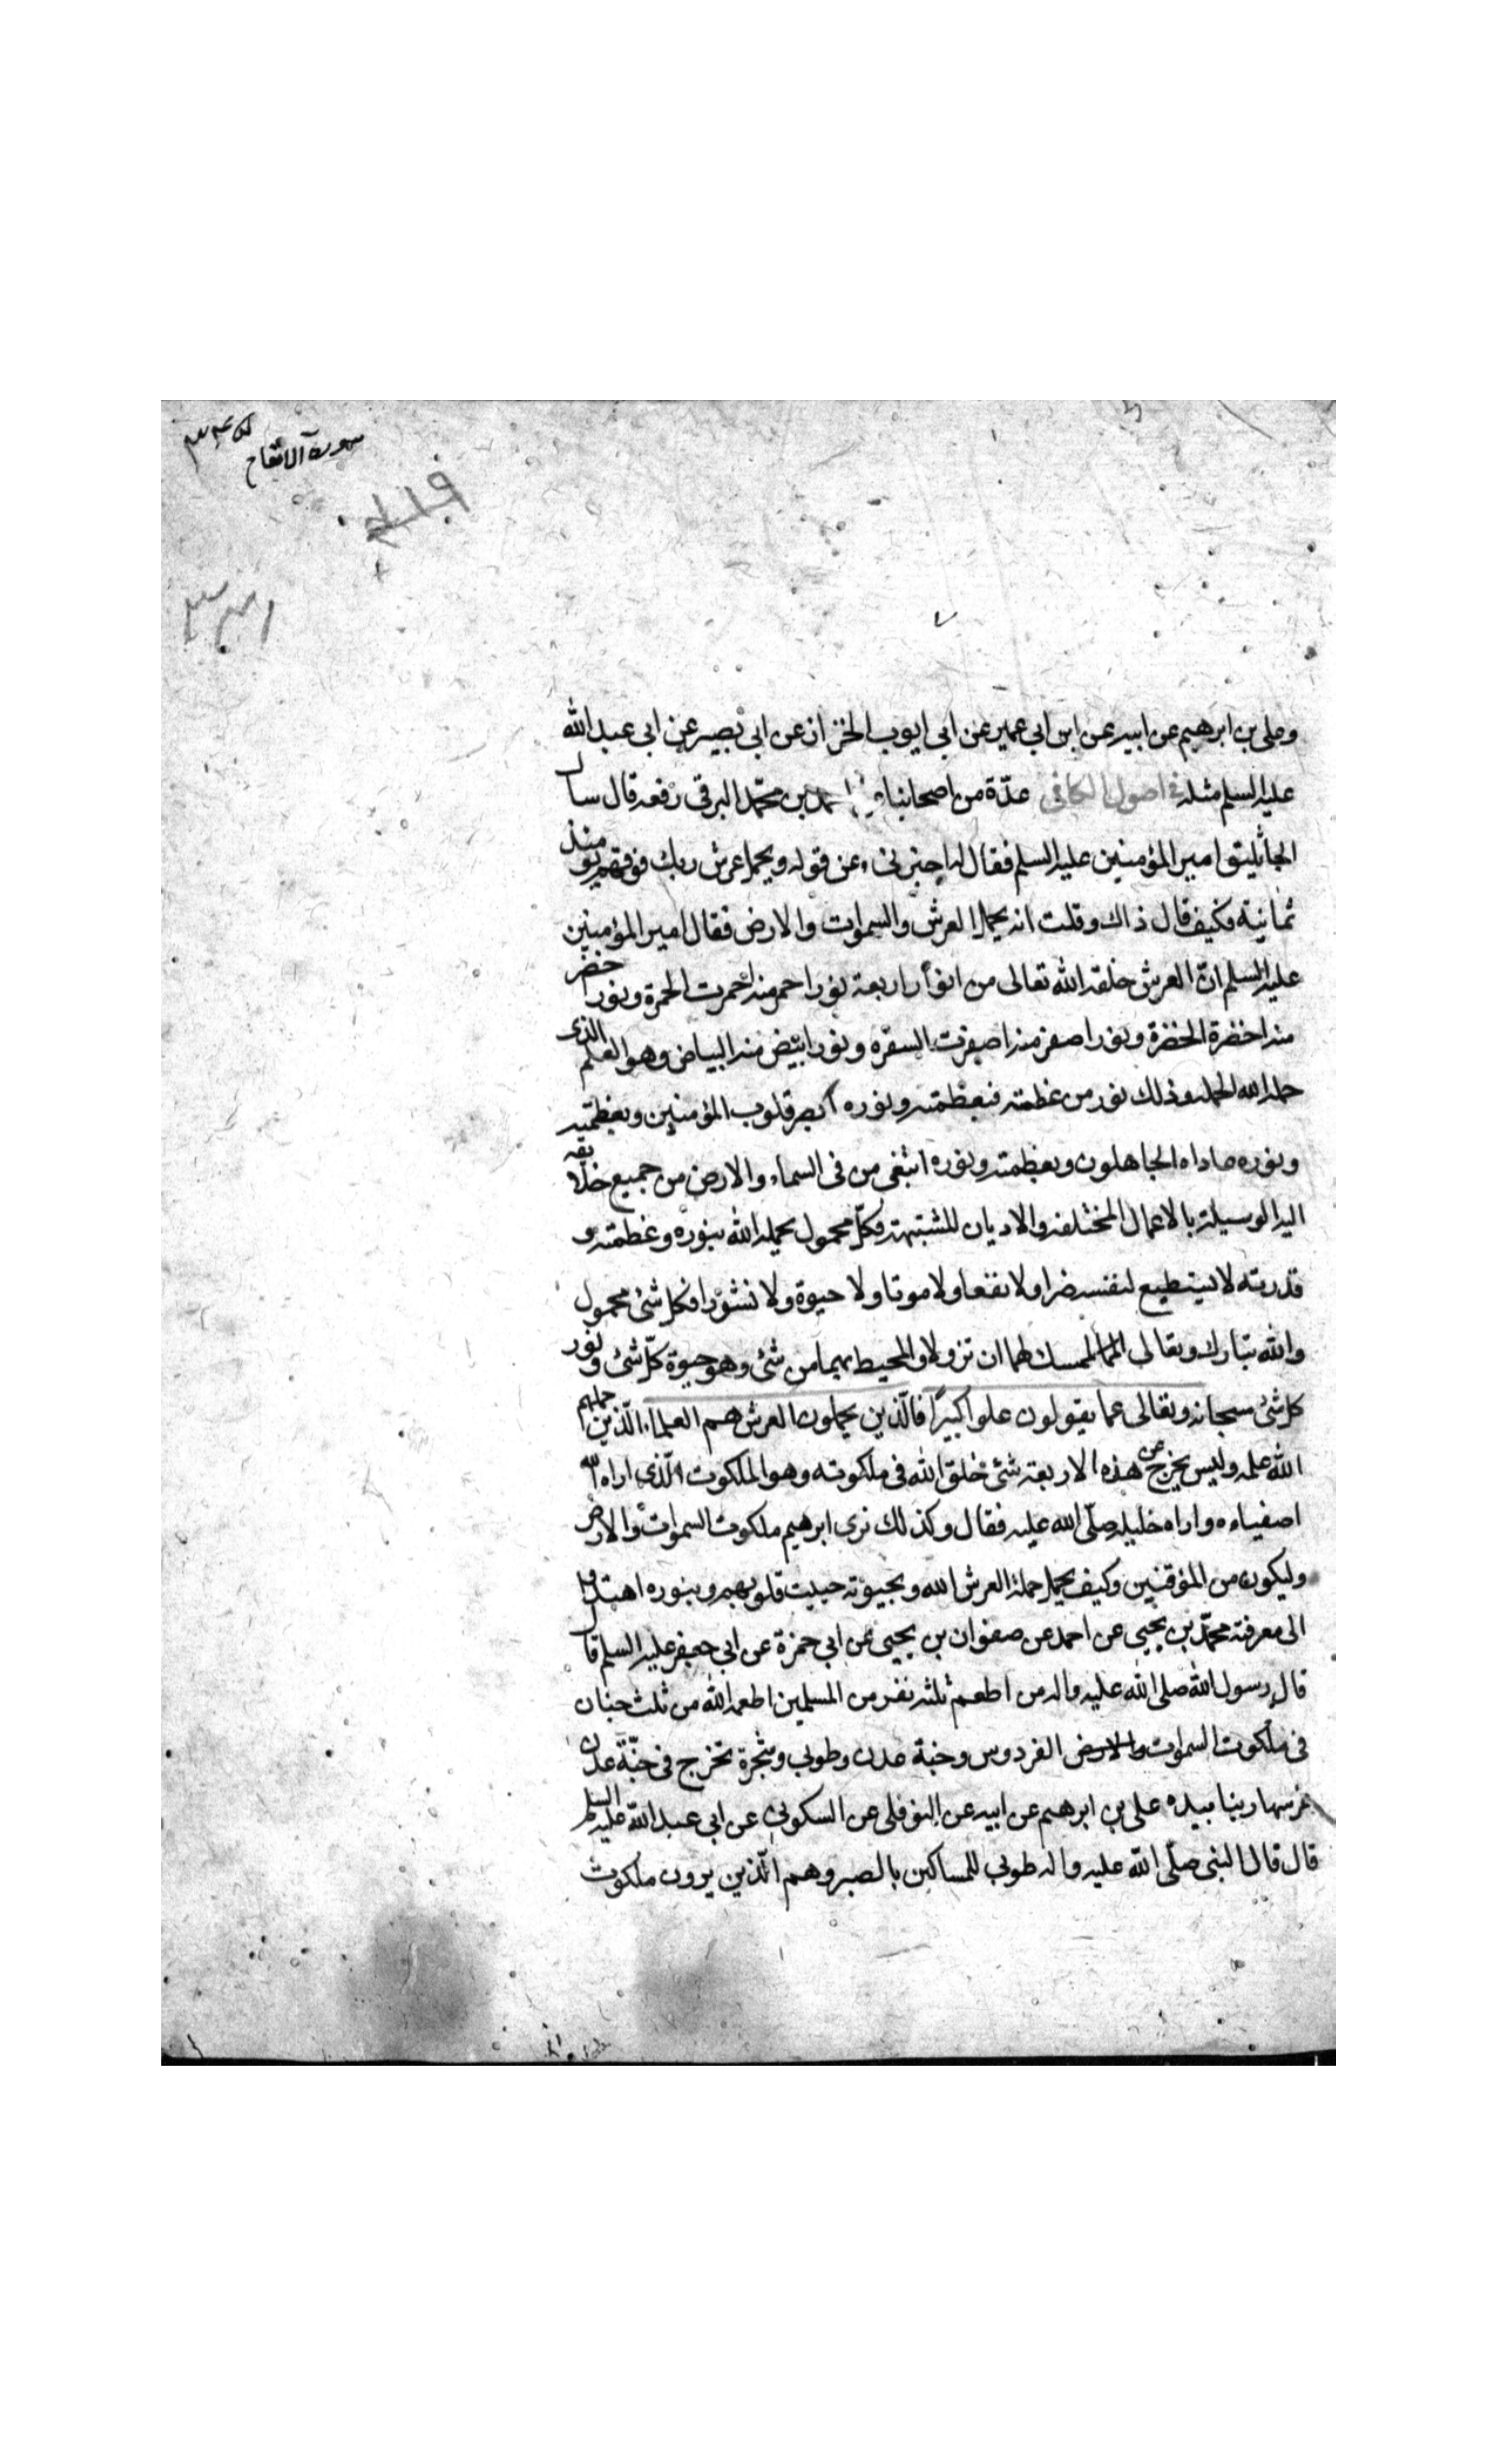 سورة الانعام
٣٣١
وعلى بن ابرهيم عن ابيه عن ابن ابي عمير عن ابي ايوب الخزاز عن ابي بصير عن ابى عبد الله
عليه السلم مثله في اصول الكافى عدّة من اصحابنا احمد بن محمّد البرقى رفعه قال سال
الجاثليق امير المؤمنين عليه السلم فقال له اخبرنى عن قوله ويحمل عرش ربك فوقهم يومئذ
ثمانية فكيف قال ذاك وقلت انه يحمل العرش والسموات والارض فقال امير المؤمنين
عليه السلم انّ العرش خلقه الله تعالى من انوار اربعة نور احمر منه احمرت الحمرة ونور اخضر
منه اخضرة الخضرة ونور اصفر منه اصفرت السفره ونور ابيض منه البياض وهو العلم الذى
حمله الله الحمله وذلك نور من عظمته فبعظمته ونوره ابصر قلوب المؤمنين وبعظمته
ونوره عاداه الجاهلون وبعظمته ونوره ابتغى من فى السماء والارض من جميع خلائقه
اليه الوسيلة بالاعمال المختلفه والاديان المشتبهة فكلّ محمول يحمله الله بنوره وعظمته و
قدرته لا يستطيع لنفسه ضرا ولا نفعا ولا موتا ولا حيوة ولا نشورا فكل شئ محمول
والله تبارك وتعالى الممسك لهما ان تزولا والمحيط بهما من شئ وهو حيوة كلّ شئ ونور
كل شئ سبحانه وتعالى عما يقولون علوا كبيرًا فالّذين يحملون العرش هم العلماء الّذين حملهم
الله علمه وليس يخرج عن هذه الاربعة شئ خلق الله فى ملكوته وهو الملكوت الّذى اراه الله
اصفياءه واراه خليله صلّى الله عليه فقال وكذلك نرى ابرهيم ملكوت السموات والارض
وليكون من الموقنين وكيف يحمل حملة العرش الله وبحيوته حييت قلوبهم وبنوره اهتدوا
الى معرفته محمّد بن يحيى عن احمد عن صفوان بن يحيى عن ابي حمزة عن ابي جعفر عليه السلم قال
قال رسول الله صلى الله عليه واله من اطعم ثلثه نفر من المسلمين اطعمه الله من ثلث جنان
فى ملكوت السموات والارض الفردوس وجنة عدن وطوبى وشجرة تخرج فى جنّة عدن
غرسها ربنا بيده على بن ابرهيم عن ابيه عن النوفلى عن السكونى عن ابى عبد الله عليه السلم
قال قال النبى صلّى الله عليه واله طوبى للمساكين بالصبر وهم الّذين يرون ملكوت